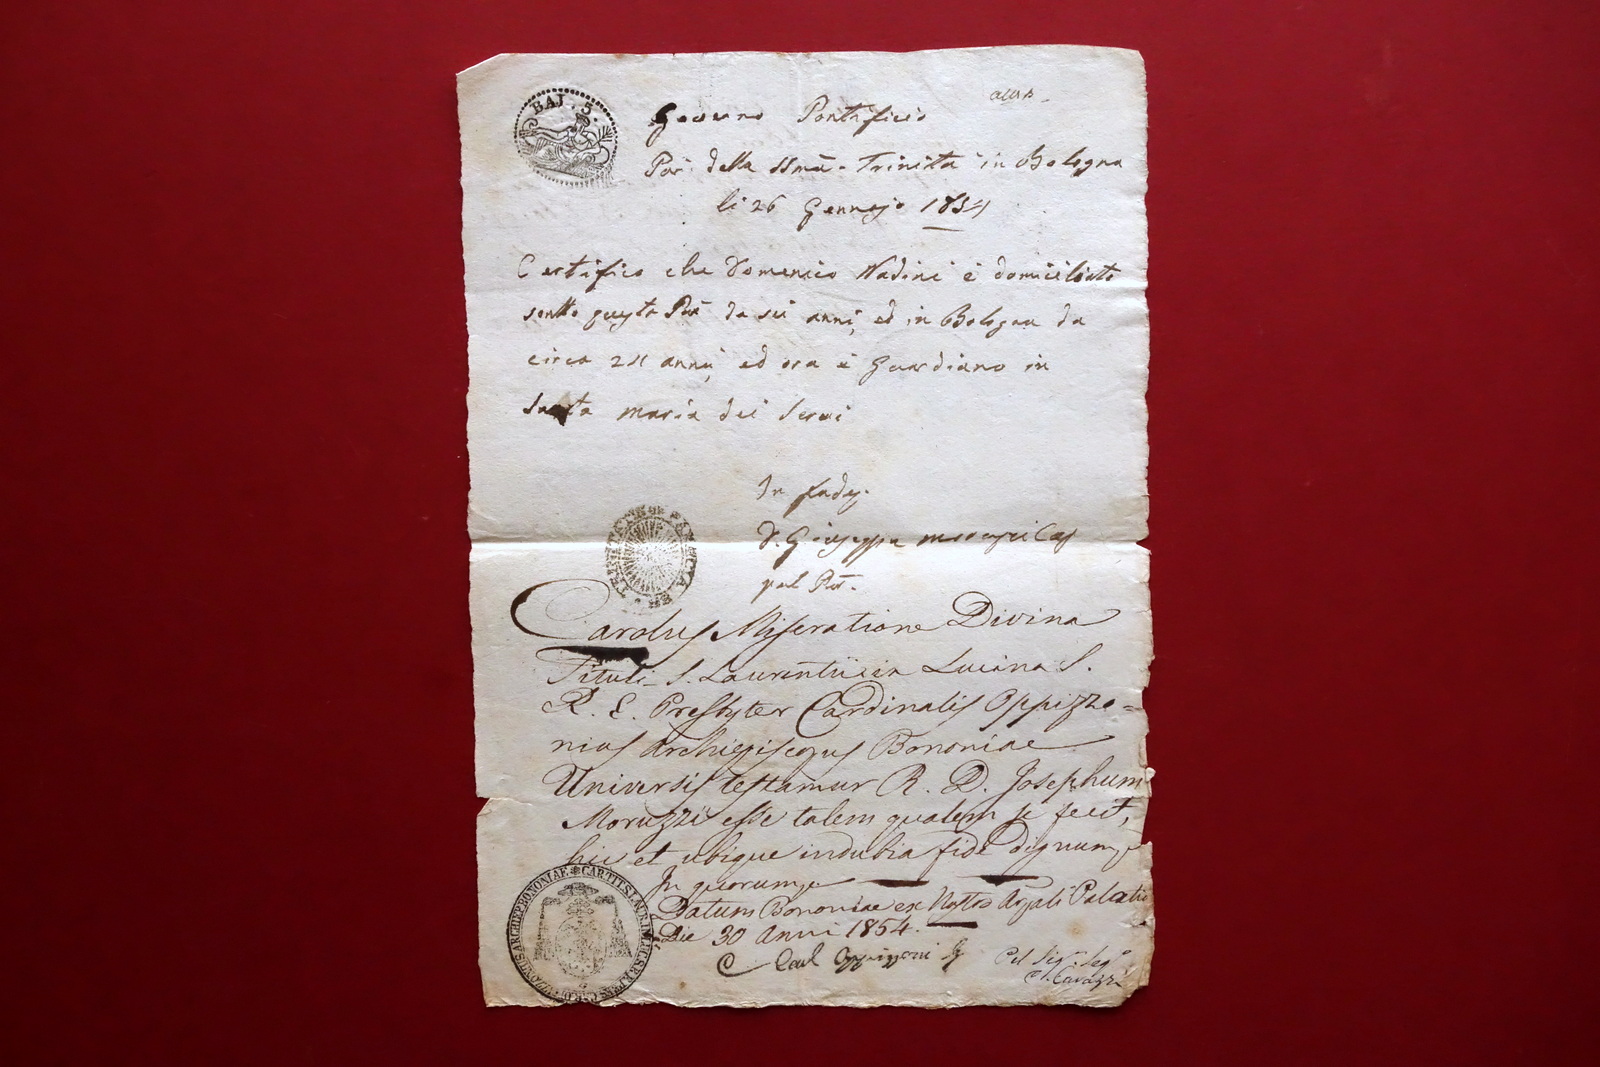 BAJ. 5.
Governo Pontificio
Par. della SSma. Trinità in Bologna
li 26 Gennajo 1854
Certifico che Domenico Nadini è domiciliato
sotto questa Par. da sei anni, ed in Bologna da
circa anni, ed ora è Guardiano in
Santa Maria dei Servi
In fede.
D. Giuseppe Moruzzi Cap.
pel
Carolus Miseratione Divina
Tituli S. Laurentii in Lucina S.
R. E. Presbyter Cardinalis Oppizzo=
nius Archiepiscopus Bononiae
Universis testamur R. D. Josephum
Moruzzi esse talem qualem se fecit,
hic et ubique indubia fide dignum
In quorum
Datum Bononiae ex Nostro Palatio
Die 30 1854.
C Card Oppizzoni
Cavazzi